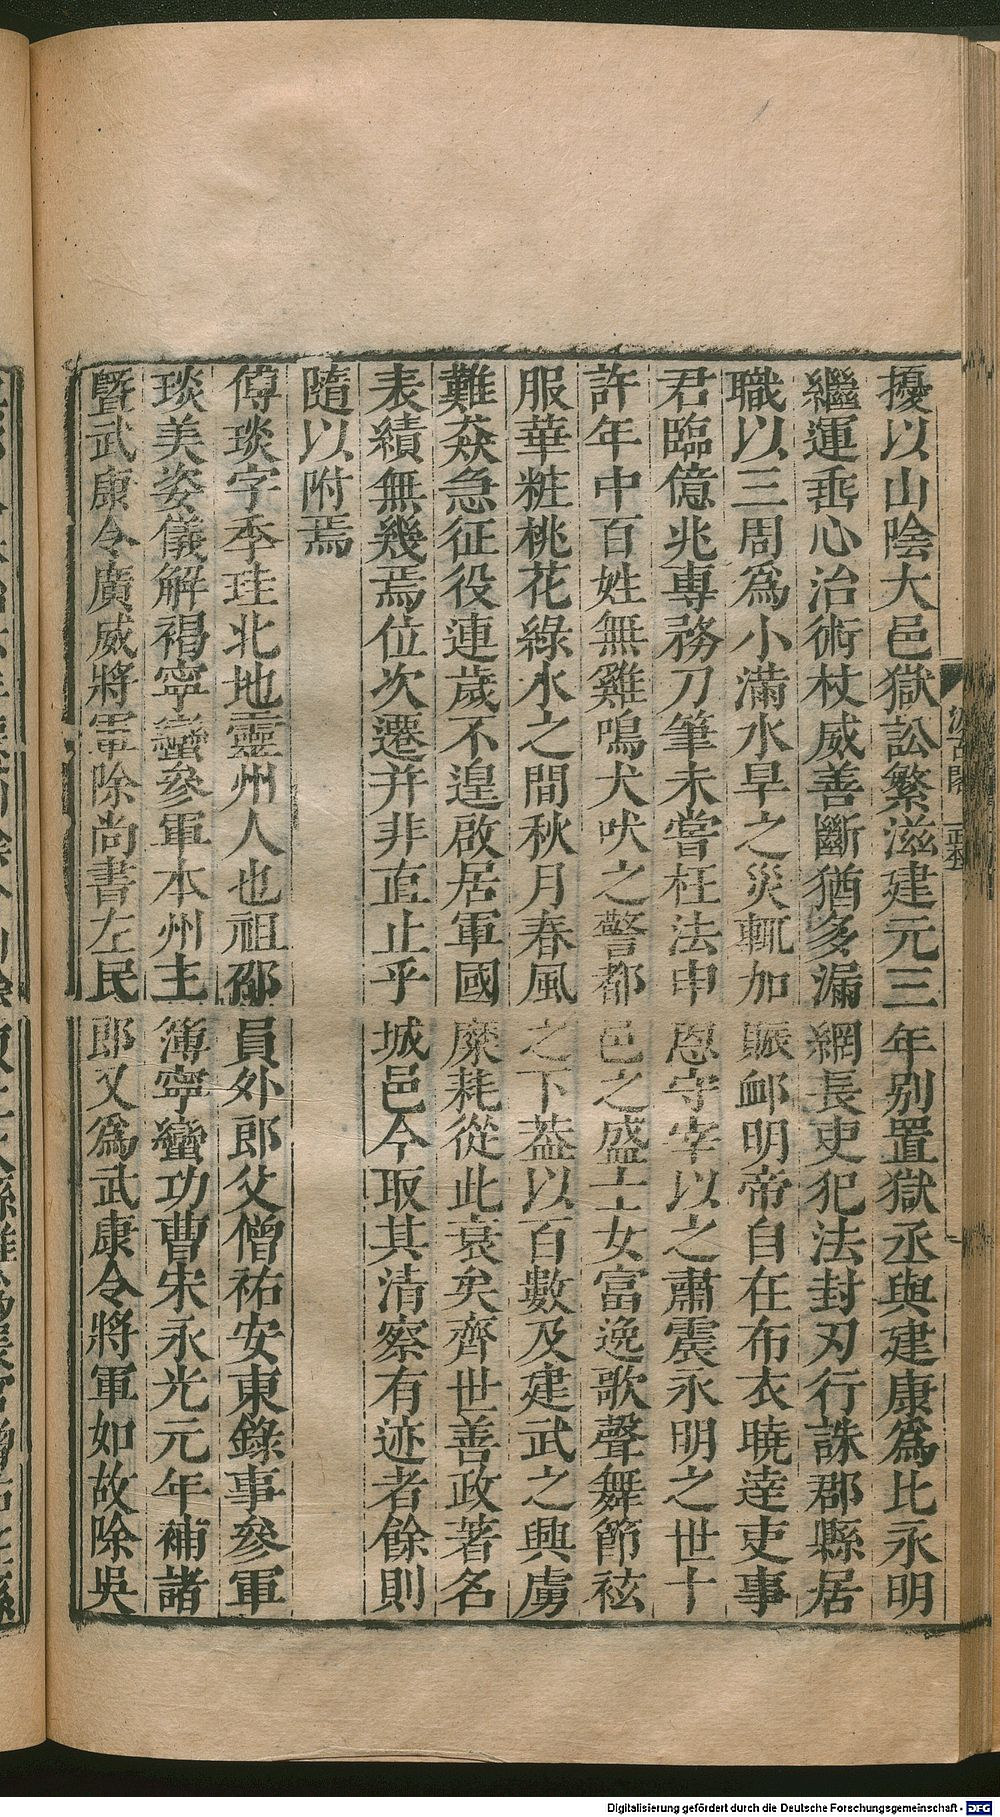 擾以山陰大邑獄訟繁滋建元三年别置獄丞與建康爲比永明
繼運垂心治術杖威善斷猶多漏網長吏犯法封刃行誅郡縣居
職以三周爲小滿水旱之災輒加賑䘏明帝自在布衣曉達吏事
君臨億兆專務刀筆未嘗枉法申恩守宰以之肅震永明之世十
許年中百姓無雞鳴犬吠之警都邑之盛士女富逸歌聲舞節袨
服華粧桃花綠水之間秋月春風之下葢以百數及建武之興虜
難猋急征役連歲不遑啟居軍國糜耗從此衰矣齊世善政著名
表績無幾焉位次遷升非直止乎城邑今取其清察有迹者餘則
隨以附焉
傅琰字季珪北地靈州人也祖邵員外郎父僧祐安東錄事參軍
琰美姿儀解褐寧蠻參軍本州主簿寧蠻功曹宋永光元年補諸
暨武康令廣威將軍除尚書左民郎又爲武康令將軍如故除吳
Digitalisierung gefördert durch die Deutsche Forschungsgemeinschaft - DFG